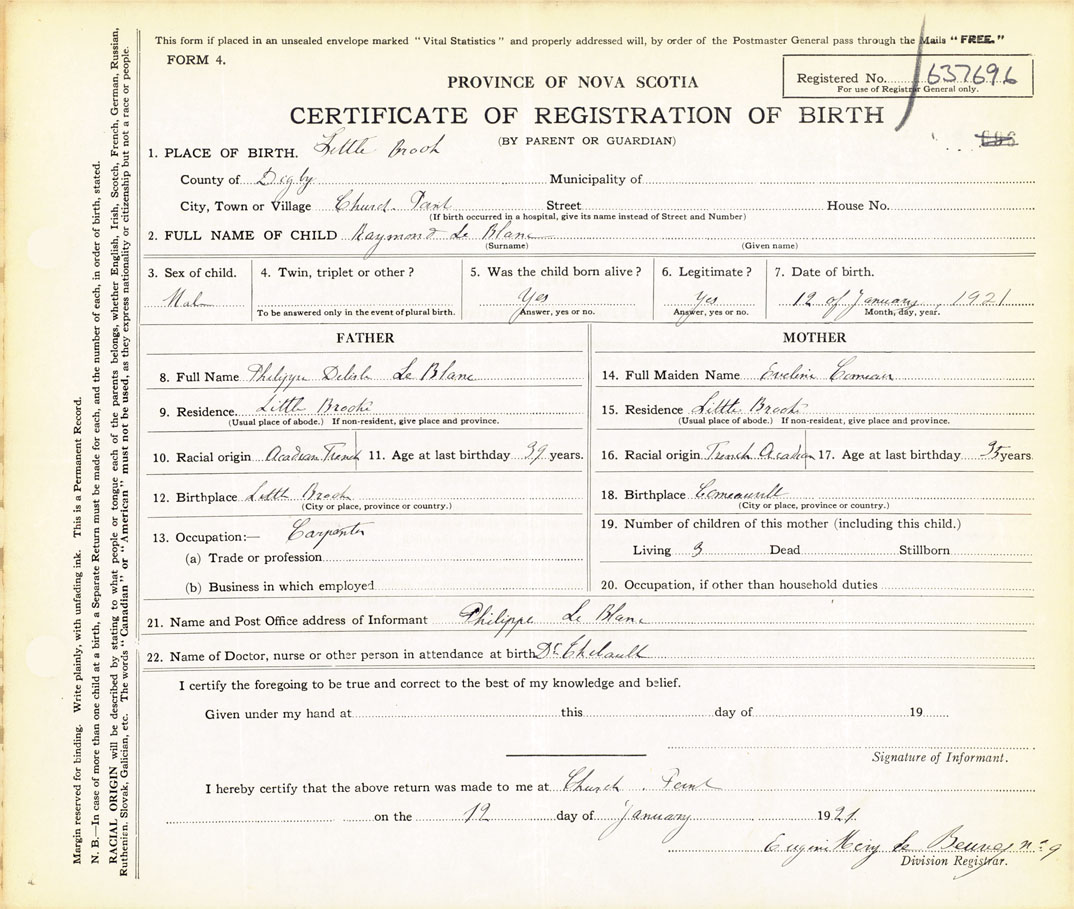 This form if placed in an unsealed envelope marked "Vital Statistics" and properly addressed will, by order of the Postmaster General pass through the Mails "FREE."
FORM 4.
PROVINCE OF NOVA SCOTIA
Registered No. 637696
For use of Registrar General only.
CERTIFICATE OF REGISTRATION OF BIRTH
(BY PARENT OR GUARDIAN)
1. PLACE OF BIRTH. Little Brook
County of Digby Municipality of
City, Town or Village Church Point Street House No.
(If birth occurred in a hospital, give its name instead of Street and Number)
2. FULL NAME OF CHILD Raymond Le Blanc
(Surname) (Given name)
3. Sex of child. 4. Twin, triplet or other? 5. Was the child born alive? 6. Legitimate? 7. Date of birth.
Male Yes Yes 12 of January, 1921
To be answered only in the event of plural birth. Answer, yes or no. Answer, yes or no. Month, day, year.
FATHER
8. Full Name Philippe Le Blanc
9. Residence. Little Brook
(Usual place of abode.) If non-resident, give place and province.
10. Racial origin Acadian French 11. Age at last birthday 39 years.
12. Birthplace Little Brook
(City or place, province or country.)
13. Occupation:— Carpenter
(a) Trade or profession
(b) Business in which employed
MOTHER
14. Full Maiden Name Eveline Comeau
15. Residence Little Brook
(Usual place of abode.) If non-resident, give place and province.
16. Racial origin French Acadian 17. Age at last birthday 35 years
18. Birthplace Comeauville
(City or place, province or country.)
19. Number of children of this mother (including this child.)
Living 3 Dead Stillborn
20. Occupation, if other than household duties
21. Name and Post Office address of Informant Philippe Le Blanc
22. Name of Doctor, nurse or other person in attendance at birth Dr Thibault
I certify the foregoing to be true and correct to the best of my knowledge and belief.
Given under my hand at this day of 19
Signature of Informant.
I hereby certify that the above return was made to me at Church Point
on the 12 day of January 1921.
Division Registrar.
Margin reserved for binding. Write plainly, with unfading ink. This is a Permanent Record.
N. B.—In case of more than one child at a birth, a Separate Return must be made for each, and the number of each, in order of birth, stated.
RACIAL ORIGIN will be described by stating to what people or tongue each of the parents belongs, whether English, Irish, Scotch, French, German, Russian,
Ruthenien, Slovak, Galician, etc. The words "Canadian" or "American" must not be used, as they express nationality or citizenship but not a race or people.